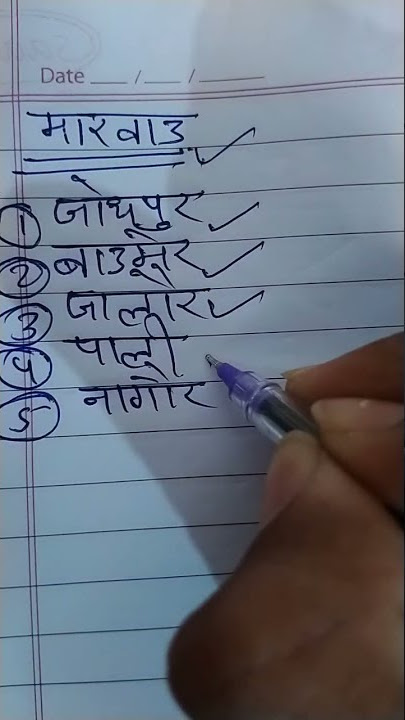 Date ___ / ___ / _____
मारवाउ
① जोधपुर
② बाउमेर
③ जालोर
④ पाली
⑤ नागौर